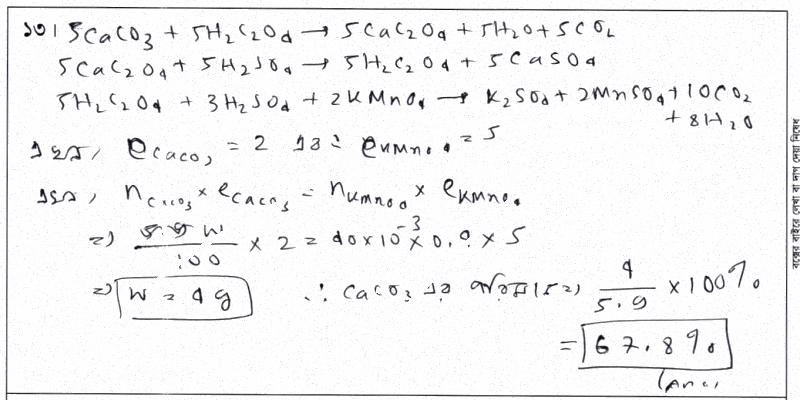 ১০। 5CaCO3 + 5H2C2O4 → 5CaC2O4 + 5H2O + 5CO2
5CaC2O4 + 5H2SO4 → 5H2C2O4 + 5CaSO4
5H2C2O4 + 3H2SO4 + 2KMnO4 → K2SO4 + 2MnSO4 + 10CO2
+ 8H2O
এখন, eCaCO3 = 2 এবং eKMnO4 = 5
এখন, nCaCO3 × eCaCO3 = nKMnO4 × eKMnO4
=> W/100 × 2 = 40×10^-3 × 0.4 × 5
=> W = 4g ∴ CaCO3 এর 4/5.9 × 100%
= 67.8%
(Ans)
বক্সের বাইরে লেখা বা দাগ দেয়া নিষেধ